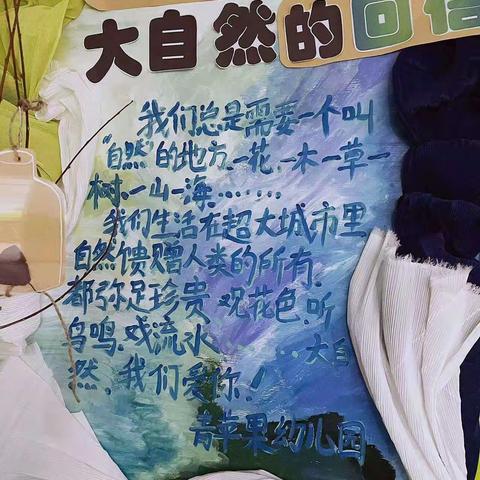 大自然的回信
我们总是需要一个叫
“自然”的地方、一花、一木一草一
树、一山一海……
我们生活在超大城市里
自然馈赠人类的所有、
都弥足珍贵 观花色、听
鸟鸣、戏流水…
…大自
然，我们爱你！
青苹果幼儿园